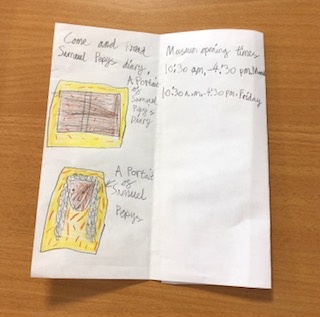 Come and read
Samuel Pepys diary,
A Portrait
of
Samuel
Pepys
Diary
A Portrait
of
Samuel
Pepys
Museum opening times
10:30 am,-4:30 pm
10:30 a.m.-4:30 pm. Friday